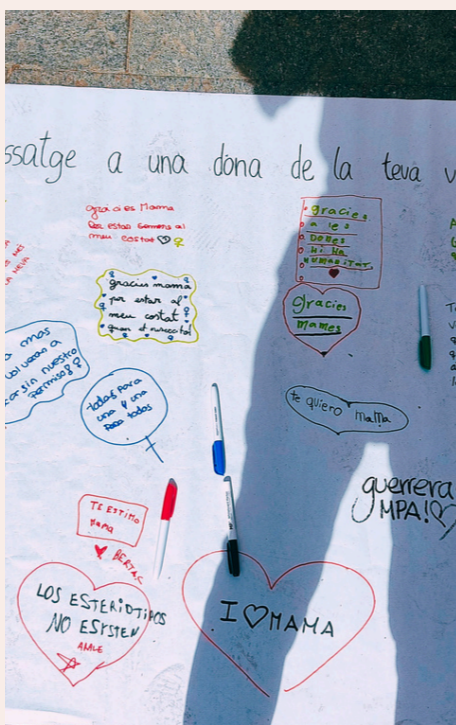 ssatge a una dona de la teva v
gràcies Mama
Per estar sempre al
meu costat
gracies
a les
DONES
HUMANITAT
gracius mamá
por estar al
meu costat
gracies
mames
a mas
permiso
todos para
una y una
para todos
te quiero mama
guerrera
MPA!
TE ESTIMO
MAMA
BERTA
LOS ESTERIOTIPOS
NO ESISTEN
I ♡ MAMA